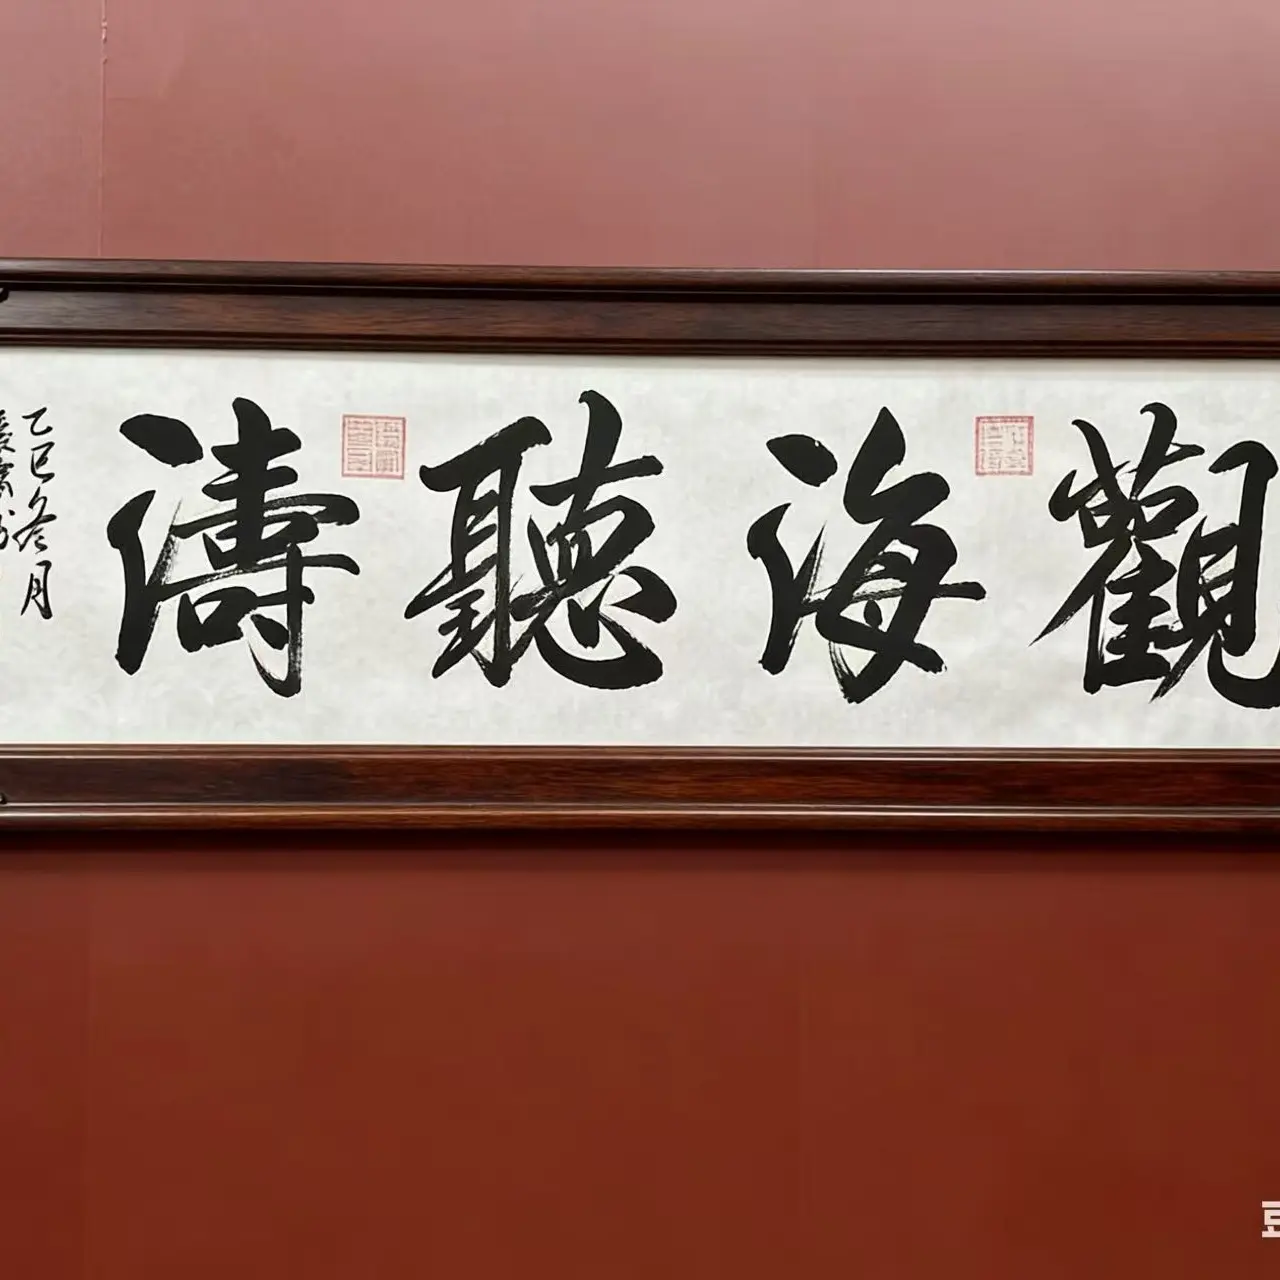 觀海聽濤
乙巳冬月